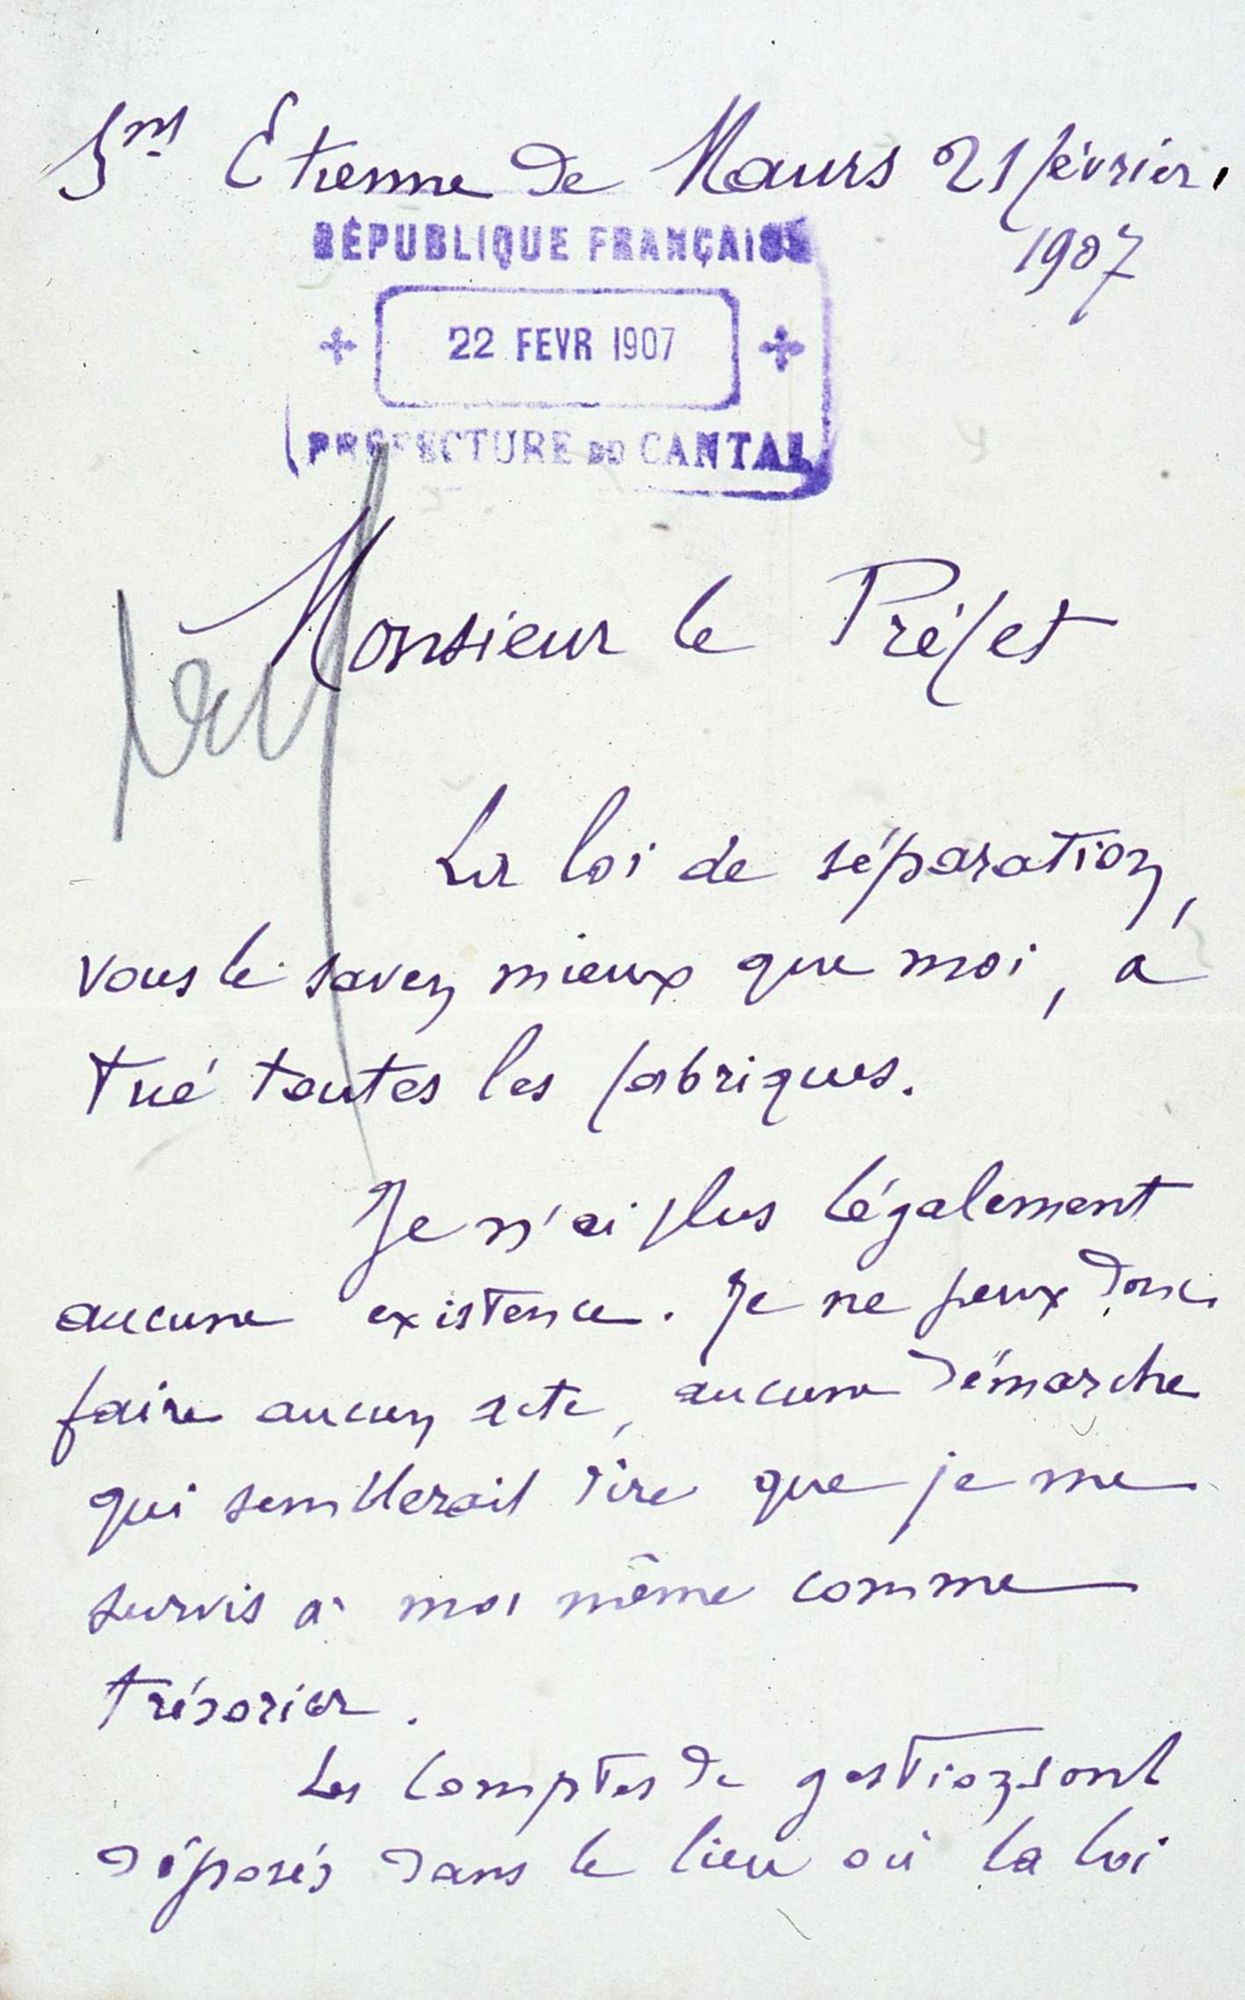 Snt Etienne de Maurs 21 février
1907
RÉPUBLIQUE FRANÇAISE
22 FEVR 1907
PRÉFECTURE DU CANTAL
Monsieur le Préfet
La loi de séparation,
vous le savez mieux que moi, a
tué toutes les fabriques.
Je n'ai plus légalement
aucune existence. Je ne peux donc
faire aucun acte, aucune démarche
qui semblerait dire que je me
survis à moi même comme
trésorier.
Les comptes de gestion sont
déposés dans le lieu où la loi